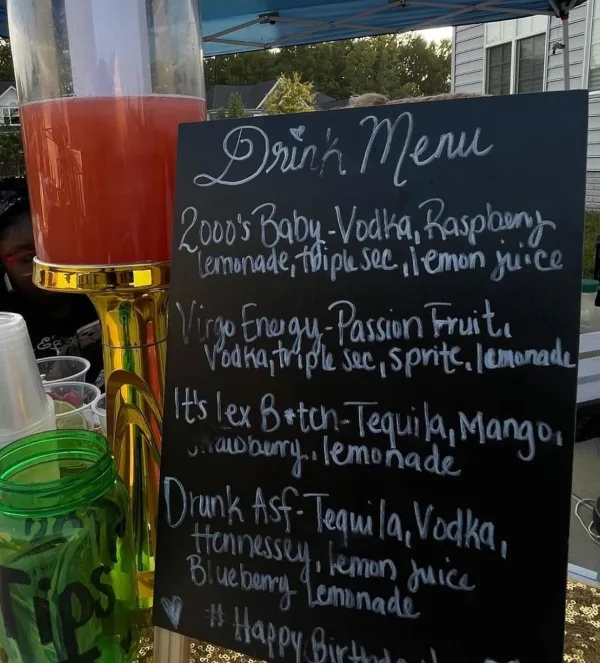 Drink Menu
2000's Baby-Vodka, Raspberry
lemonade, triple sec, lemon juice
Virgo Energy-Passion Fruit,
Vodka, triple sec, sprite, lemonade
It's Lex B*tch-Tequila, Mango,
strawberry, lemonade
Drunk Asf-Tequila, Vodka,
Hennessey, lemon juice
Blueberry Lemonade
# Happy
Tips